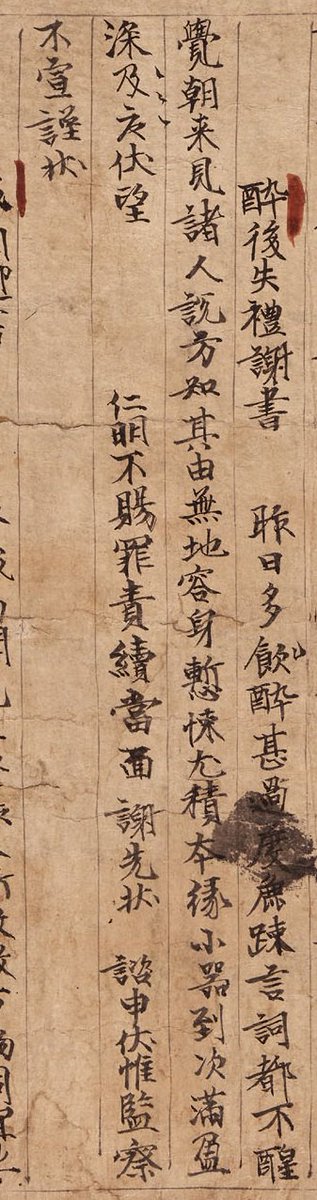 醉後失禮謝書 昨日多飲醉甚過度麁踈言詞都不醒
覺朝来見諸人説方知其由無地容身慙悚尤積本緣小器到次滿盈
深及伏望 仁明不賜罪責續當面 謝先狀 諮申伏惟監察
不宣謹狀